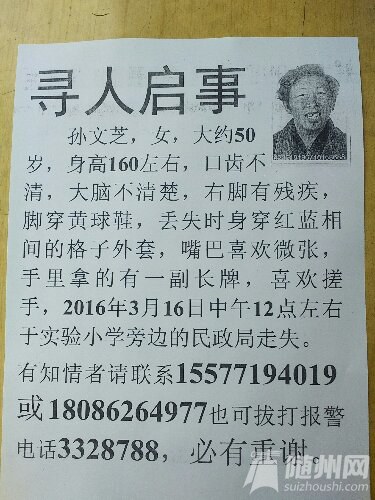 寻人启事
孙文芝，女，大约50
岁，身高160左右，口齿不
清，大脑不清楚，右脚有残疾，
脚穿黄球鞋，丢失时身穿红蓝相
间的格子外套，嘴巴喜欢微张，
手里拿的有一副长牌，喜欢搓
手，2016年3月16日中午12点左右
于实验小学旁边的民政局走失。
有知情者请联系15577194019
或18086264977也可拔打报警
电话3328788，必有重谢。
随州网
suizhoushi.com